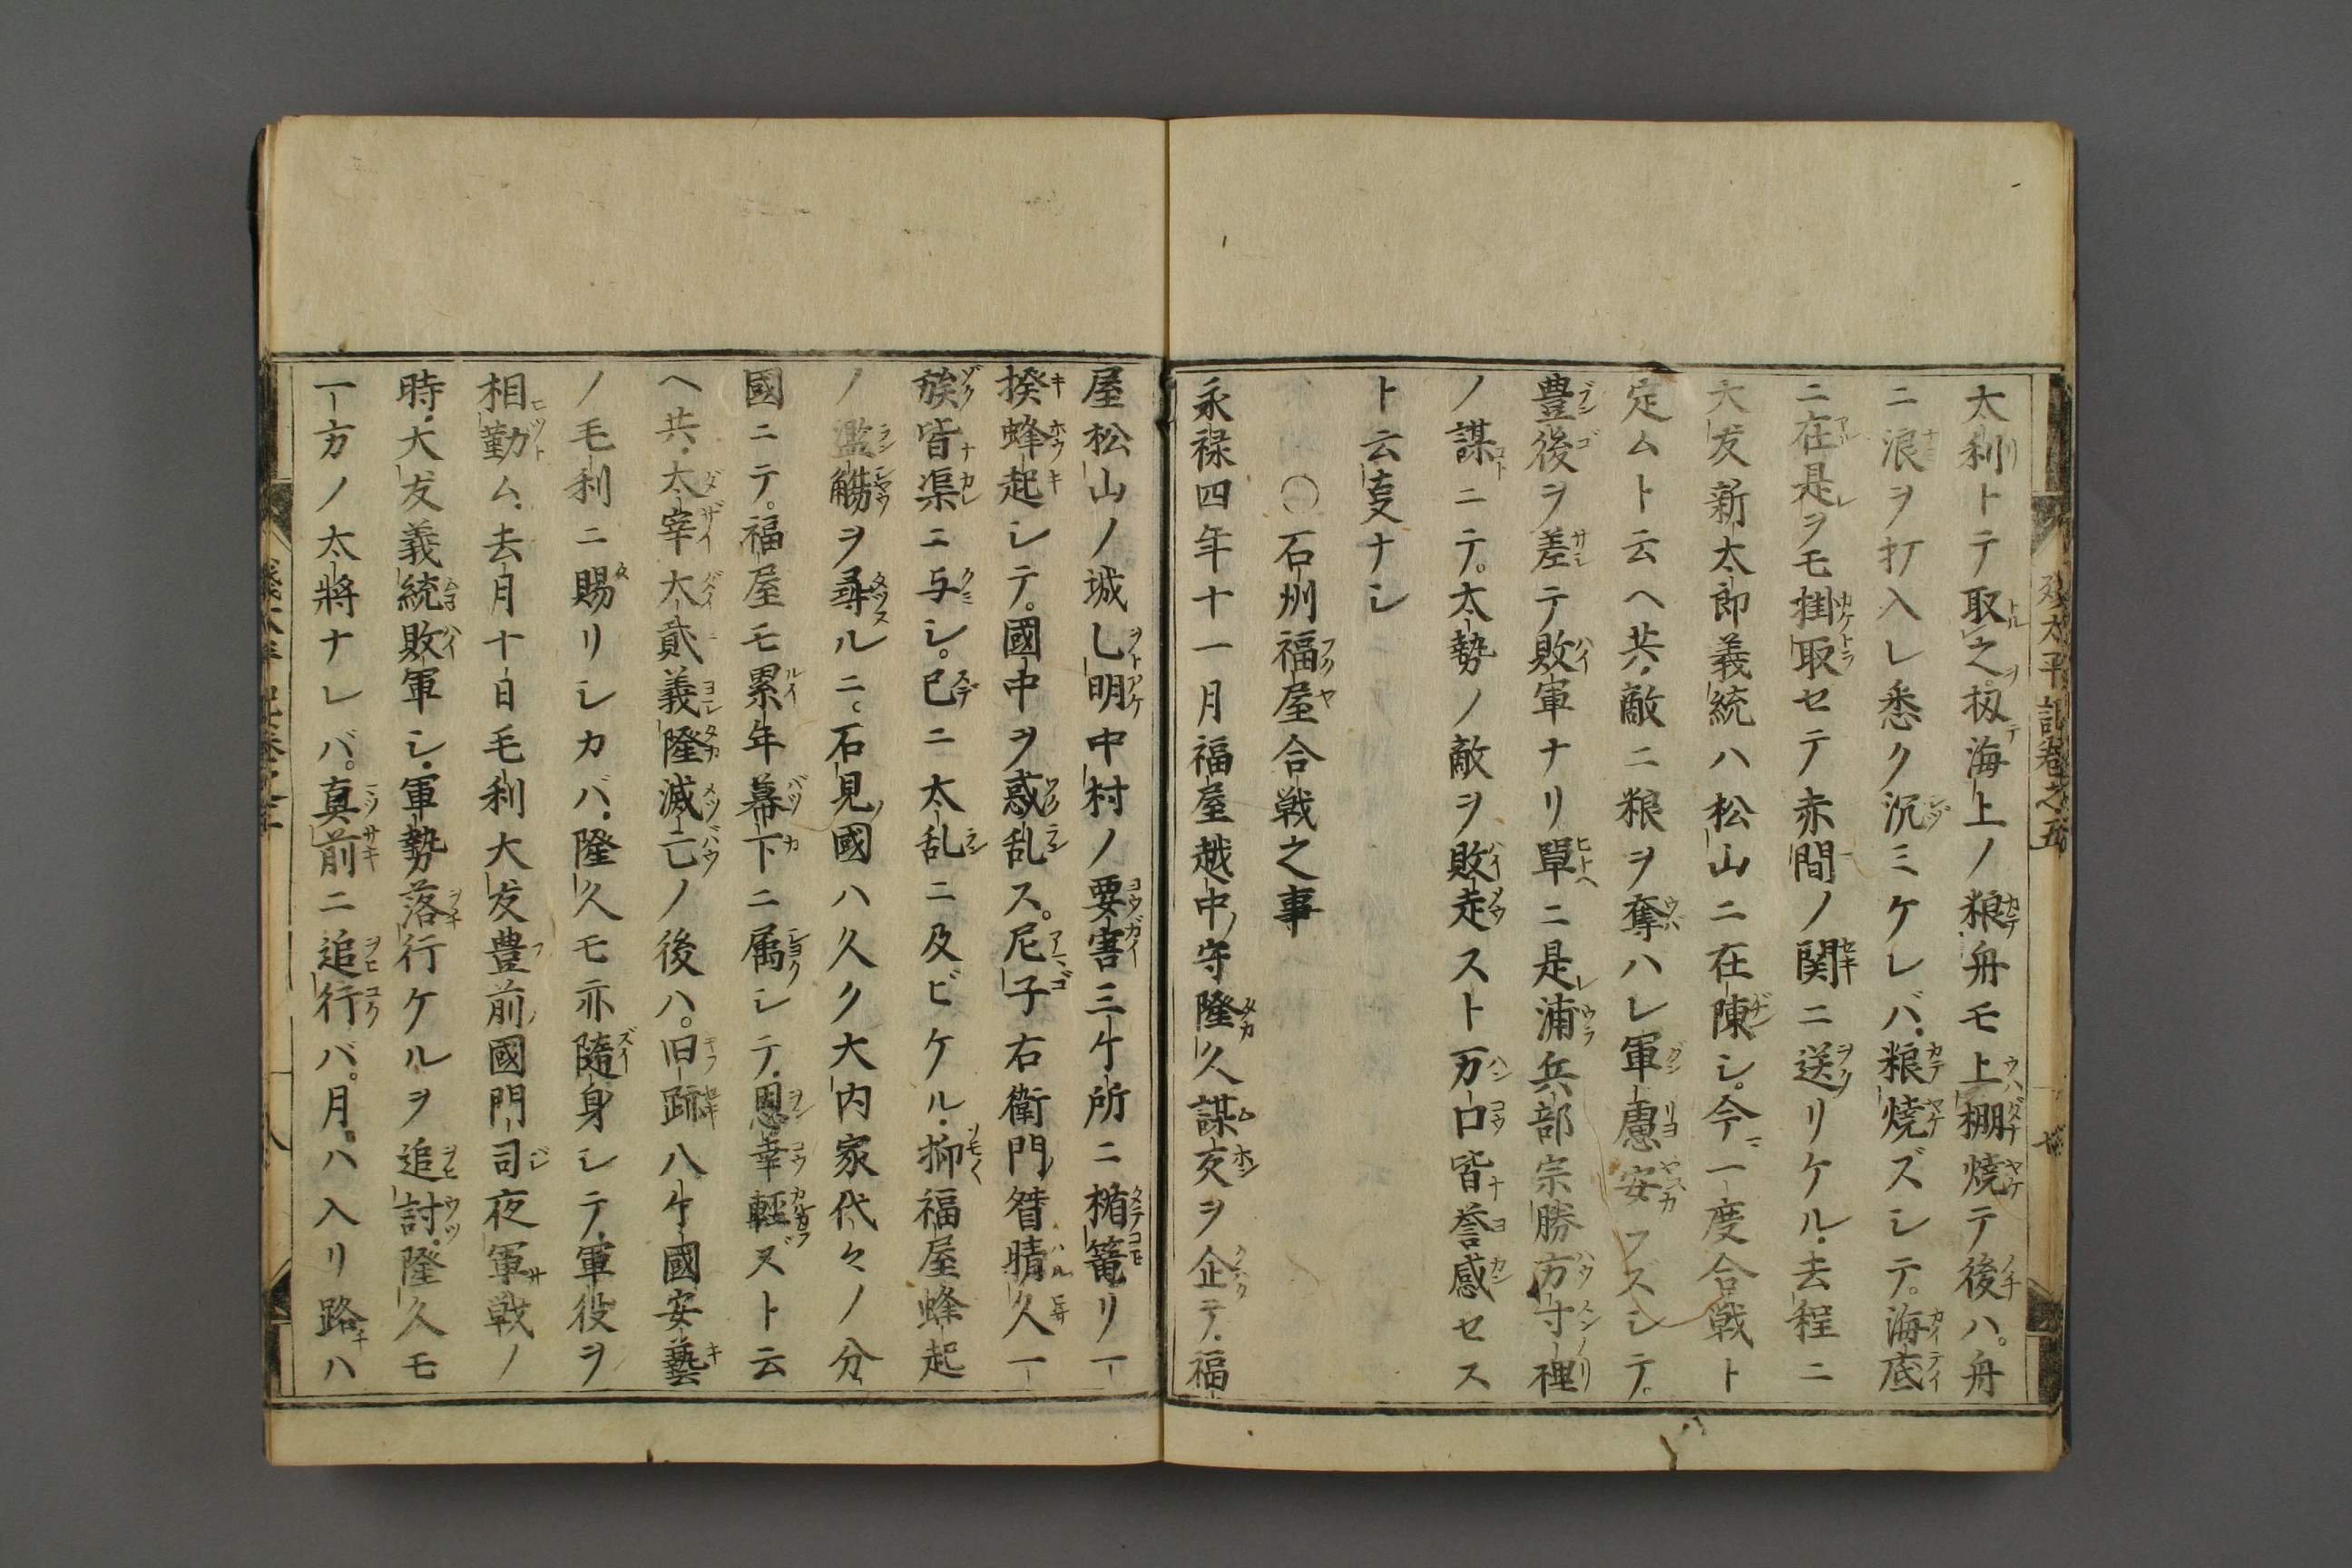 太利トテ取之。扨海上ノ粮舟モ上棚焼テ後ハ。舟
ニ浪ヲ打入レ悉ク沉ミケレバ。粮焼ズシテ。海底
ニ在是ヲモ掛取セテ赤間ノ関ニ送リケル。去程ニ
大友新太郎義統ハ松山ニ在陳シ。今一度合戦ト
定ムト云ヘ共。敵ニ粮ヲ奪ハレ軍慮安カズシテ。
豊後ヲ差テ敗軍ナリ單ニ是浦兵部宗勝方寸裡
ノ謀ニテ。太勢ノ敵ヲ敗走スト万口皆誉感セス
ト云叓ナシ
〇石州福屋合戦之事
永禄四年十一月福屋越中守隆久謀叛ヲ企テ。福
屋松山ノ城乚明中村ノ要害三ケ所ニ楯篭リ一
揆蜂起シテ。國中ヲ惑乱ス。尼子右衛門督晴久一
族皆渠ニ与シ。已ニ太乱ニ及ビケル。抑福屋蜂起
ノ濫觴ヲ尋ルニ。石見國ハ久ク大内家代々ノ分
國ニテ。福屋モ累年幕下ニ属シテ。恩幸輕ズト云
ヘ共。太宰大貳義隆滅亡ノ後ハ。旧跡八ケ國安藝
ノ毛利ニ賜リシカバ。隆久モ亦隨身シテ。軍役ヲ
相勤ム。去月十日毛利大友豊前國門司夜軍戦ノ
時。大友義統敗軍シ。軍勢落行ケルヲ追討。隆久モ
一方ノ太將ナレバ。真前ニ追行バ。月ハ入リ路ハ